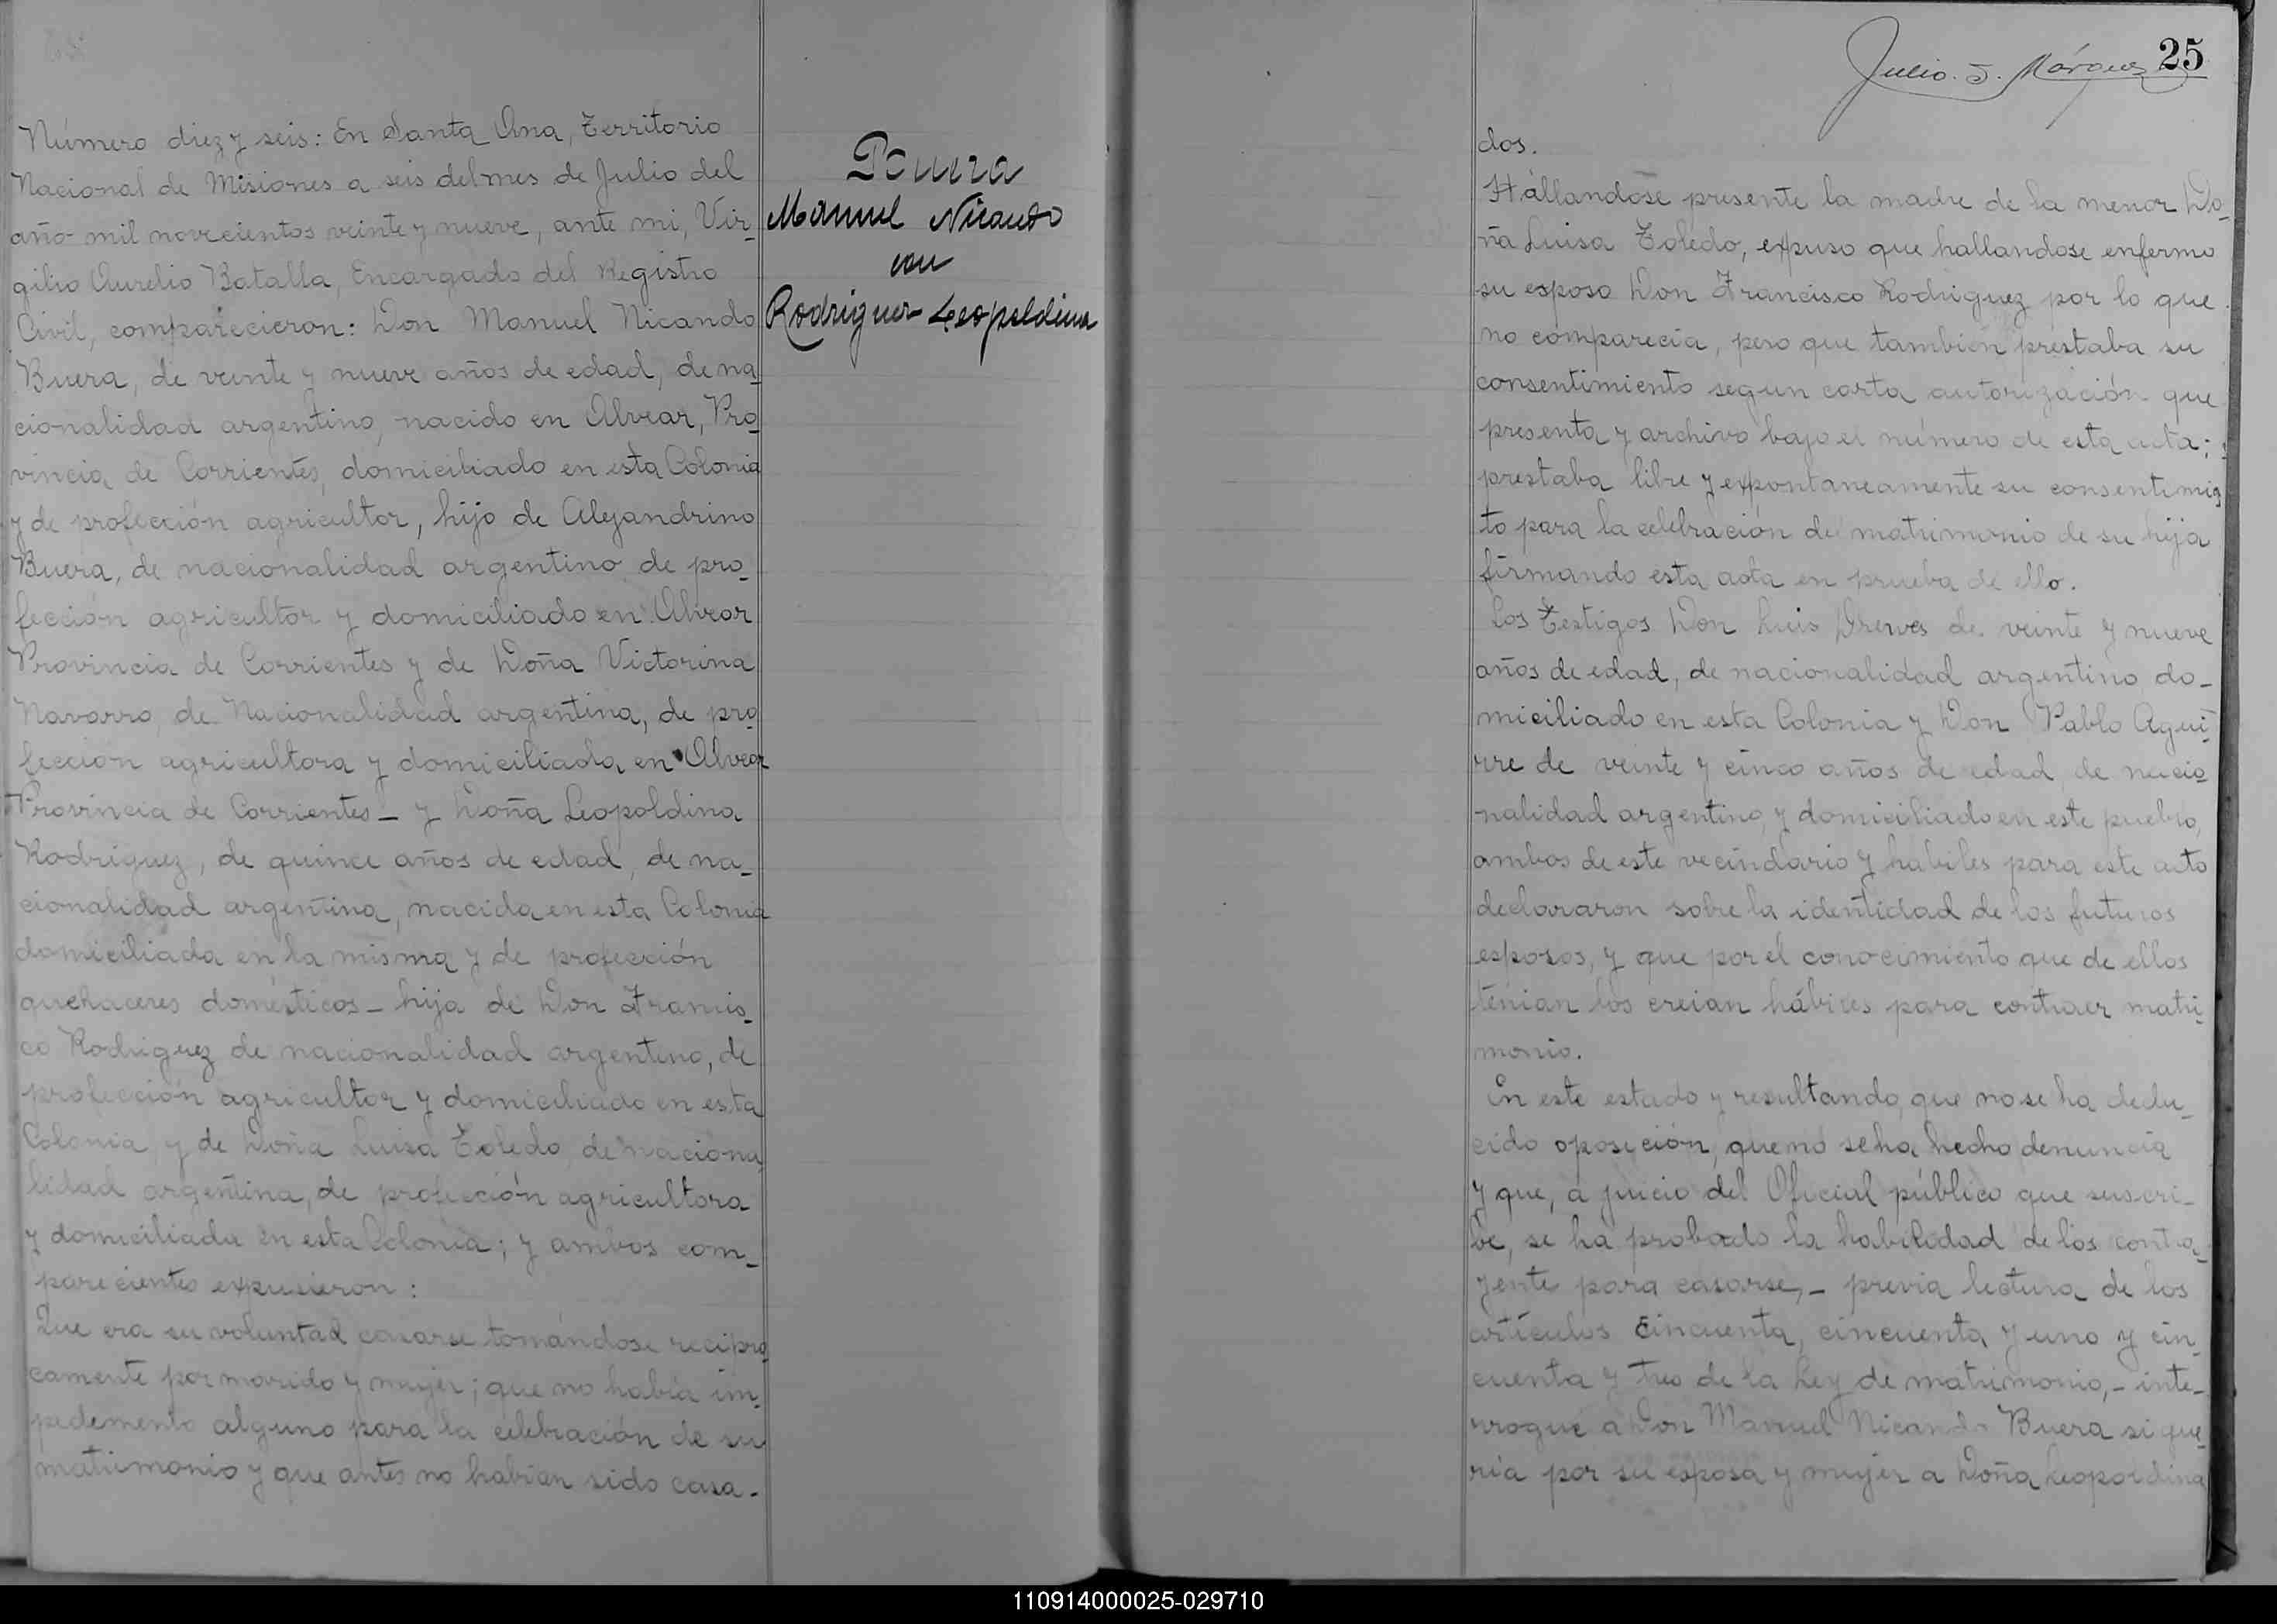 Número diez y seis: En Santa Ana, Territorio
Nacional de Misiones a seis del mes de Julio del
año mil novecientos veinte y nueve, ante mi, Vir-
gilio Aurelio Batalla, Encargado del Registro
Civil, comparecieron: Don Manuel Nicando
Buera, de veinte y nueve años de edad, de na-
cionalidad argentino, nacido en Alvear, Pro-
vincia de Corrientes, domiciliado en esta Colonia
y de profección agricultor, hijo de Alejandrino
Buera, de nacionalidad argentino de pro-
fección agricultor y domiciliado en Alvear
Provincia de Corrientes y de Doña Victorina
Navarro, de Nacionalidad argentina, de pro-
fección agricultora y domiciliada en Alvear
Provincia de Corrientes - y Doña Leopoldina
Rodriguez, de quince años de edad, de na-
cionalidad argentina, nacida en esta Colonia
domiciliada en la misma y de profección
quehaceres domésticos - hija de Don Francis-
co Rodriguez de nacionalidad argentino, de
profección agricultor y domiciliado en esta
Colonia, y de Doña Luisa Toledo, de naciona-
lidad argentina, de profección agricultora
y domiciliada en esta Colonia; y ambos com-
parecientes expusieron:
Que era su voluntad casarse tomándose recipro-
camente por marido y mujer; que no había im-
pedemento alguno para la celebración de su
matrimonio y que antes no habían sido casa-
Manuel Nicando
con
Rodriguez Leopoldina
Julio. J. Márquez 25
dos.
Hállandose presente la madre de la menor Do-
ña Luisa Toledo, expuso que hallandose enfermo
su esposo Don Francisco Rodriguez por lo que
no comparecia, pero que también prestaba su
consentimiento segun carta autorización que
presenta y archivo bajo el número de esta acta;
prestaba libre y expontaneamente su consentimien
to para la celebración del matrimonio de su hija
firmando esta acta en prueba de ello.
Los Testigos Don Luis Drewes de veinte y nueve
años de edad, de nacionalidad argentino do-
miciliado en esta Colonia y Don Pablo Agui-
rre de veinte y cinco años de edad, de nacio-
nalidad argentino, y domiciliado en este pueblo,
ambos de este vecindario y habiles para este acto
declararon sobre la identidad de los futuros
esposos, y que por el conocimiento que de ellos
tenian los creian hábiles para contraer matri-
monio.
En este estado y resultando, que no se ha dedu-
cido oposición, que no se ha hecho denuncia
y que, á juicio del Oficial público que suscri-
be, se ha probado la habilidad de los contra-
yente para casarse, - previa lectura de los
artículos cincuenta, cincuenta y uno y cin-
cuenta y tres de la Ley de matrimonio, - inte-
rrogué a Don Manuel Nicando Buera si que-
ria por su esposa y mujer a Doña Leopoldina
110914000025-029710